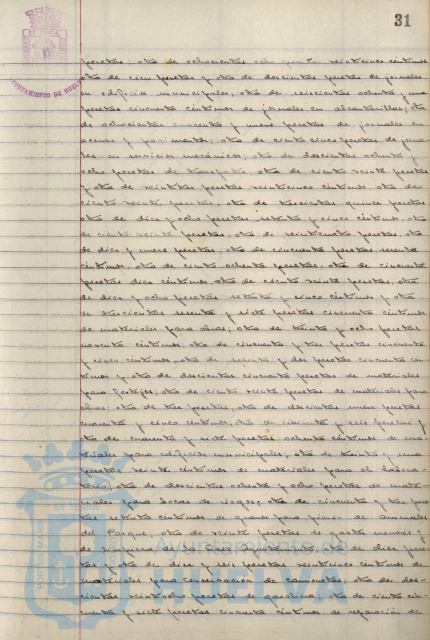 31
AYUNTAMIENTO DE HUELVA
pesetas; otra de ochocientas ocho veinticinco céntimos
otra de cien pesetas y otra de doscientas pesetas de jornales
en edificios municipales, otra de seiscientas ochenta y una
pesetas cincuenta céntimos de jornales en alcantarillas; otra
de ochocientas cuarenta y nueve pesetas de jornales en
aceras y pavimentos; otra de ciento cinco pesetas de jorna-
les en servicios mecánicos; otra de doscientas ochenta y
ocho pesetas de transporte, otra de ciento veinte pesetas
y otra de veintitres pesetas veinticinco céntimos, otra de
ciento veinte pesetas, otra de trescientas quince pesetas
otra de diez y ocho pesetas setenta y cinco céntimos, otra
de ciento veinte pesetas, otra de veinticuatro pesetas, otra
de diez y nueve pesetas, otra de cincuenta pesetas sesenta
céntimos, otra de ciento ochenta pesetas, otra de cincuenta
pesetas diez céntimos, otra de ciento veinte pesetas, otra
de diez y ocho pesetas setenta y cinco céntimos y otra
de trescientas sesenta y siete pesetas cincuenta céntimos
de materiales para obras; otra de treinta y ocho pesetas
noventa céntimos, otra de cincuenta y tres pesetas cincuenta
y cinco céntimos, otra de sesenta y dos pesetas cincuenta cén-
timos y otra de doscientas cincuenta pesetas de materiales
para festejos; otra de ciento veinte pesetas de materiales para
obras; otra de tres pesetas, otra de doscientas nueve pesetas
cuarenta y cinco céntimos, otra de cincuenta y seis pesetas y
otra de cuarenta y siete pesetas ochenta céntimos de ma-
teriales para edificios municipales; otra de treinta y una
pesetas veinte céntimos de materiales para el labora-
torio; otra de doscientas ochenta y ocho pesetas de mate-
riales para bocas de riego; otra de cincuenta y tres pese-
tas setenta céntimos de para pienso de animales
del Parque; otra de veinte pesetas de gastos menores y
de limpieza de la Casa Ayuntamiento, otra de diez pese-
tas y otra de diez y seis pesetas veinticinco céntimos de
materiales para conservación de camionetas; otra de dos-
cientas veintiocho pesetas de gasolina; otra de ciento cin-
cuenta y siete pesetas cincuenta céntimos de reparación de
Ayuntamiento de
HUELVA